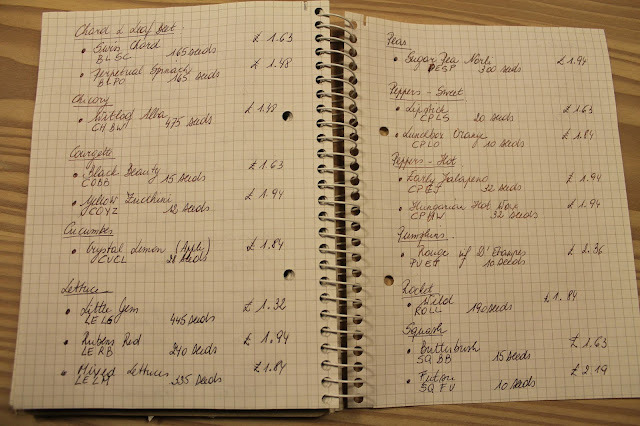 Chard & Leaf Beet
• Swiss Chard £ 1.63
BLSC 165 seeds
• Perpetual Spinach £ 1.48
BLPO 165 seeds
Chicory
• Witloof Alba £ 1.48
CHBW 475 seeds
Courgette
• Black Beauty £ 1.63
COBB 15 seeds
• Yellow Zucchini £ 1.94
COYZ 12 seeds
Cucumber
• Crystal Lemon (Apply) £ 1.84
CUCL seeds
Lettuce
• Little Gem £ 1.32
LELG 445 seeds
• Rubens Red £ 1.94
LERB 240 seeds
• Mixed Lettuces £ 1.84
LELM 335 seeds
Peas
• Sugar Pea Norli £ 1.94
PESP 300 seeds
Peppers - Sweet
• Lipstick £ 1.63
CPLS 20 seeds
• Lunchbox Orange £ 1.84
CPLO 10 seeds
Peppers - Hot
• Early Jalapeno £ 1.94
CPEJ 32 seeds
• Hungarian Hot Wax £ 1.94
CPHW 32 seeds
Pumpkins
• Rouge vif D'Etampes £ 2.36
PUET 10 seeds
Rocket
• Wild £ 1.84
ROLL 190 seeds
Squash
• Butterbush £ 1.63
SQBB 15 seeds
• £ 2.19
SQFU 10 seeds